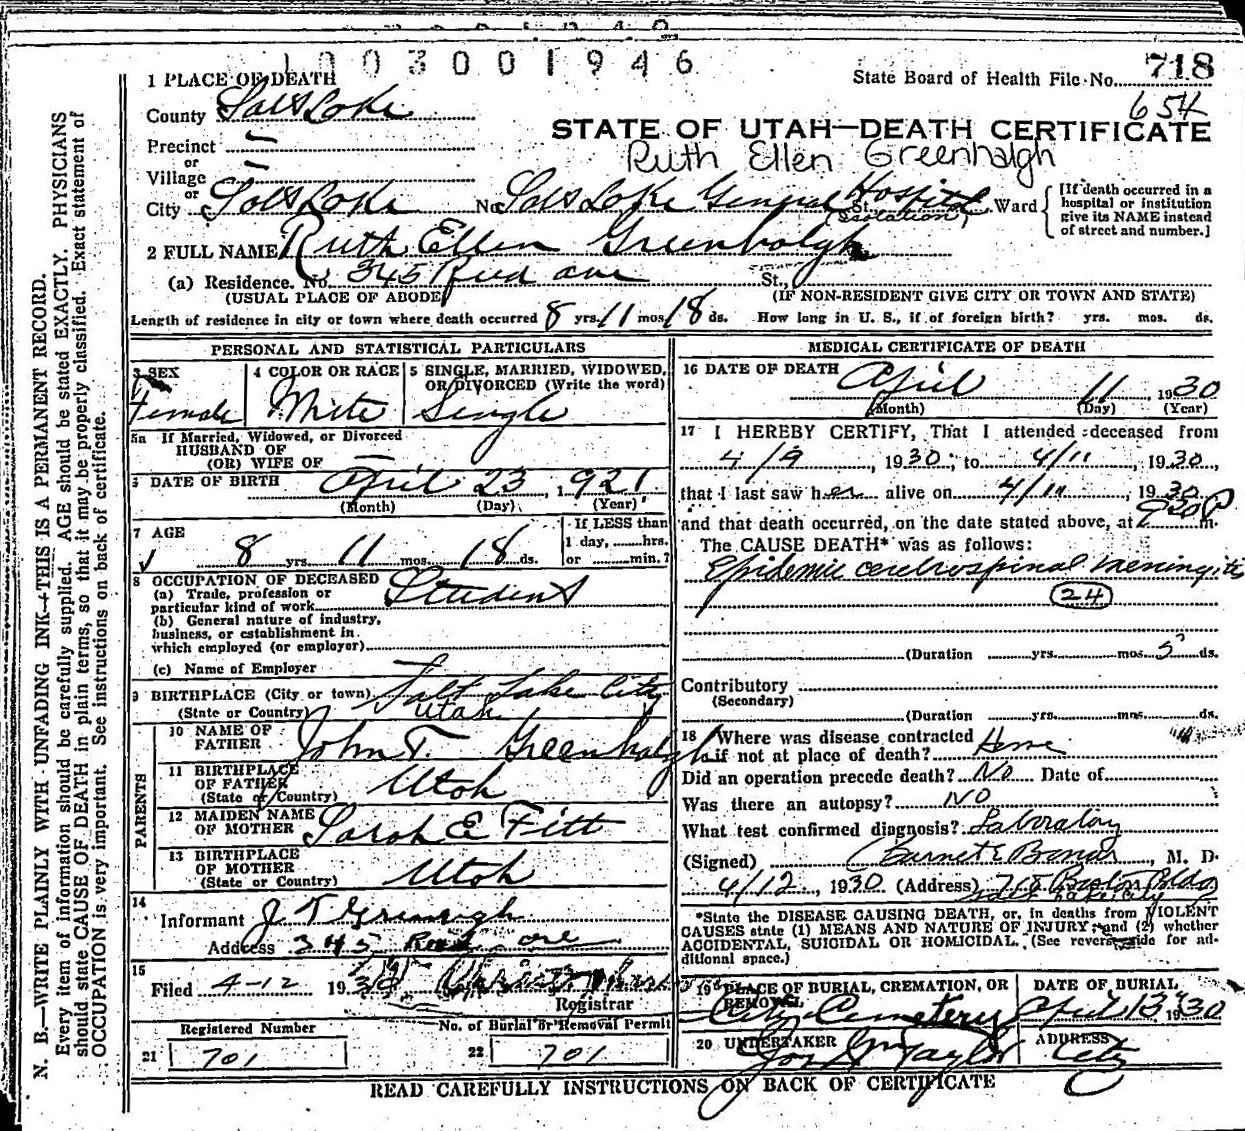 1003001946
1 PLACE OF DEATH
State Board of Health File No. 718
654
County Salt Lake
STATE OF UTAH—DEATH CERTIFICATE
Precinct —
Ruth Ellen Greenhalgh
or
Village —
or
City Salt Lake No. Salt Lake General Hospital St. Ward
(Isolation)
[If death occurred in a
hospital or institution
give its NAME instead
of street and number.]
2 FULL NAME Ruth Ellen Greenhalgh
(a) Residence. No. 345 Reed ave St.,
(USUAL PLACE OF ABODE) (IF NON-RESIDENT GIVE CITY OR TOWN AND STATE)
Length of residence in city or town where death occurred 8 yrs. 11 mos. 18 ds. How long in U. S., if of foreign birth? yrs. mos. ds.
PERSONAL AND STATISTICAL PARTICULARS
3 SEX
Female
4 COLOR OR RACE
White
5 SINGLE, MARRIED, WIDOWED,
OR DIVORCED (Write the word)
Single
5a If Married, Widowed, or Divorced
HUSBAND OF
(OR) WIFE OF —
6 DATE OF BIRTH April 23, 1921
(Month) (Day) (Year)
7 AGE
8 yrs. 11 mos. 18 ds.
If LESS than
1 day, hrs.
or min.?
8 OCCUPATION OF DECEASED
(a) Trade, profession or
particular kind of work Student
(b) General nature of industry,
business, or establishment in
which employed (or employer)
(c) Name of Employer
9 BIRTHPLACE (City or town) Salt Lake City
(State or Country) Utah
PARENTS
10 NAME OF
FATHER John T. Greenhalgh
11 BIRTHPLACE
OF FATHER
(State or Country) Utah
12 MAIDEN NAME
OF MOTHER Sarah E Fitt
13 BIRTHPLACE
OF MOTHER
(State or Country) Utah
14
Informant J T Greenhalgh
Address 345 Reed ave
15
Filed 4-12 1930
Registrar
Registered Number
No. of Burial or Removal Permit
21 701
22 701
MEDICAL CERTIFICATE OF DEATH
16 DATE OF DEATH April 11, 1930
(Month) (Day) (Year)
17 I HEREBY CERTIFY, That I attended deceased from
4/9, 1930, to 4/11, 1930,
that I last saw her alive on 4/11, 1930
and that death occurred, on the date stated above, at 930 P m.
The CAUSE DEATH* was as follows:
Epidemic cerebrospinal meningitis
24
(Duration yrs. mos. 5 ds.
Contributory
(Secondary)
(Duration yrs. mos. ds.
18 Where was disease contracted
if not at place of death? Home
Did an operation precede death? No Date of
Was there an autopsy? No
What test confirmed diagnosis? Laboratory
(Signed) M. D.
4/12, 1930 (Address) 718 Boston Bldg
Salt Lake City
*State the DISEASE CAUSING DEATH, or, in deaths from VIOLENT
CAUSES state (1) MEANS AND NATURE OF INJURY; and (2) whether
ACCIDENTAL, SUICIDAL OR HOMICIDAL. (See reverse side for ad-
ditional space.)
19 PLACE OF BURIAL, CREMATION, OR
REMOVAL
City Cemetery
DATE OF BURIAL
April 13 1930
20 UNDERTAKER
Taylor
ADDRESS
City
READ CAREFULLY INSTRUCTIONS ON BACK OF CERTIFICATE
N. B.—WRITE PLAINLY WITH UNFADING INK—THIS IS A PERMANENT RECORD.
Every item of information should be carefully supplied. AGE should be stated EXACTLY. PHYSICIANS
should state CAUSE OF DEATH in plain terms, so that it may be properly classified. Exact statement of
OCCUPATION is very important. See instructions on back of certificate.